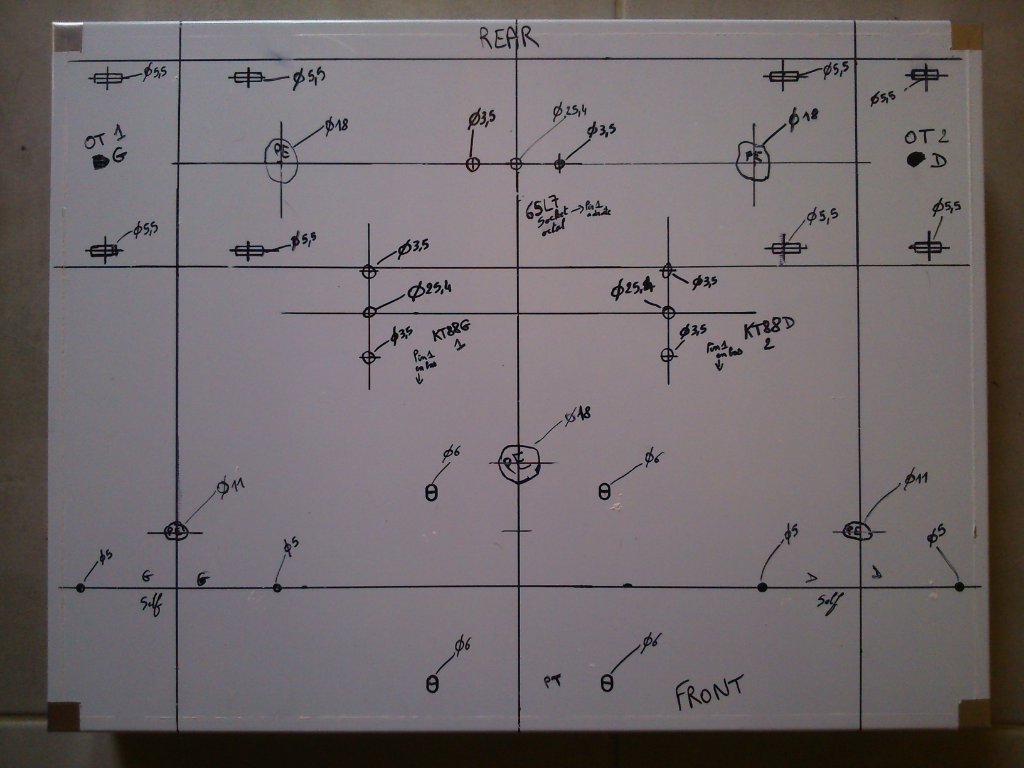 REAR
Φ5,5
Φ5,5
Φ5,5
Φ5,5
OT 1
G
Φ18
PE
Φ3,5
Φ25,4
Φ3,5
Φ18
PE
OT 2
D
6SL7
Socket → Pin 1
octal
Φ5,5
Φ5,5
Φ5,5
Φ5,5
Φ3,5
Φ3,5
Φ25,4
Φ25,4
Φ3,5
KT88G
1
Pin 1
en bas
↓
Φ3,5
KT88D
2
Pin 1
en bas
↓
Φ18
PE
Φ6
Φ6
Φ11
PE
Φ11
PE
Φ5
Φ5
Φ5
Φ5
G G
Self
D D
Self
Φ6
Φ6
PT
FRONT